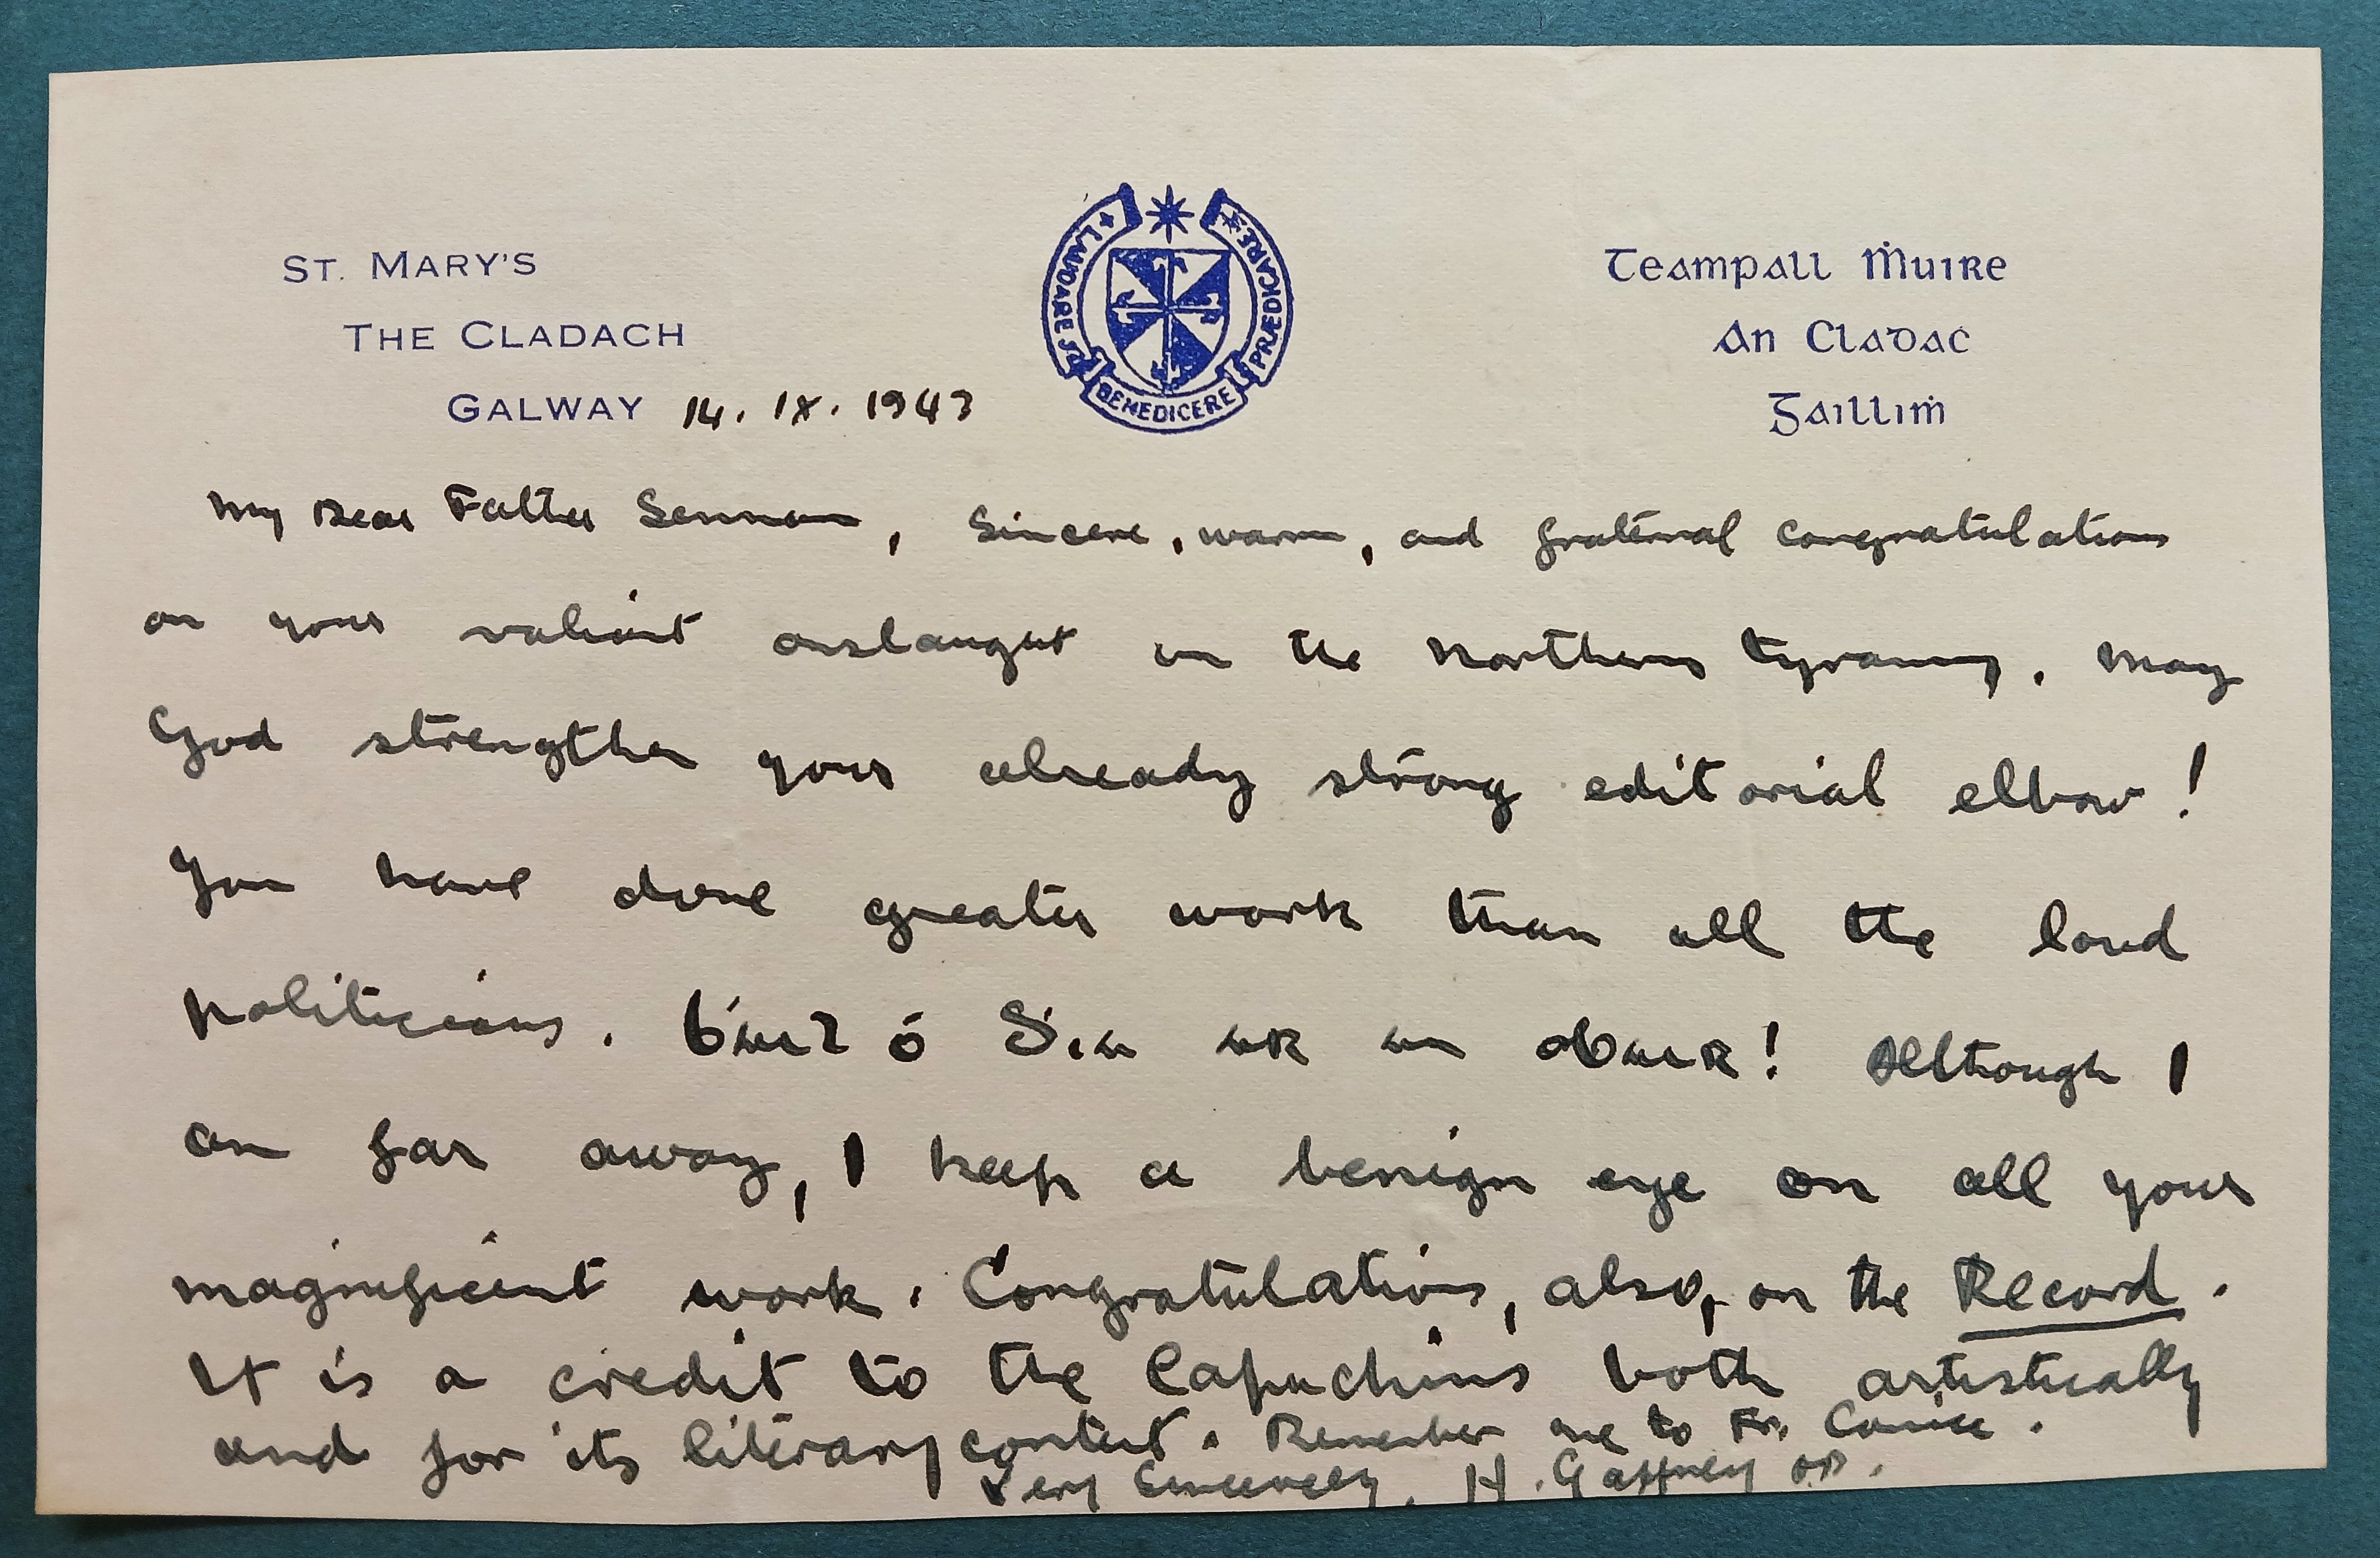 ST. MARY'S
THE CLADACH
GALWAY 14. IX. 1943
LAUDARE
BENEDICERE
PRÆDICARE
Teampall Ṁuire
An Cladaċ
Gailliṁ
My Dear Father Senan, Sincere, warm, and fraternal congratulations
on your valiant onslaught on the Northern tyranny. May
God strengthen your already strong editorial elbow!
You have done greater work than all the loud
politicians. Bail ó Dia ar an obair! Although I
am far away, I keep a benign eye on all your
magnificent work. Congratulations, also, on the Record.
It is a credit to the Capuchins both artistically
and for its literary content. Remember me to Fr. Canice.
Very Sincerely, H. Gaffney OP.